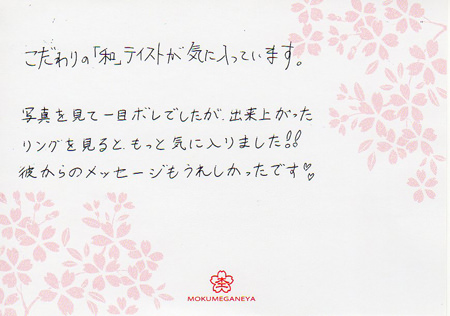 こだわりの「和」テイストが気に入っています。
写真を見て一目ボレでしたが、出来上がった
リングを見ると、もっと気に入りました!!
彼からのメッセージもうれしかったです♡♡
MOKUMEGANEYA